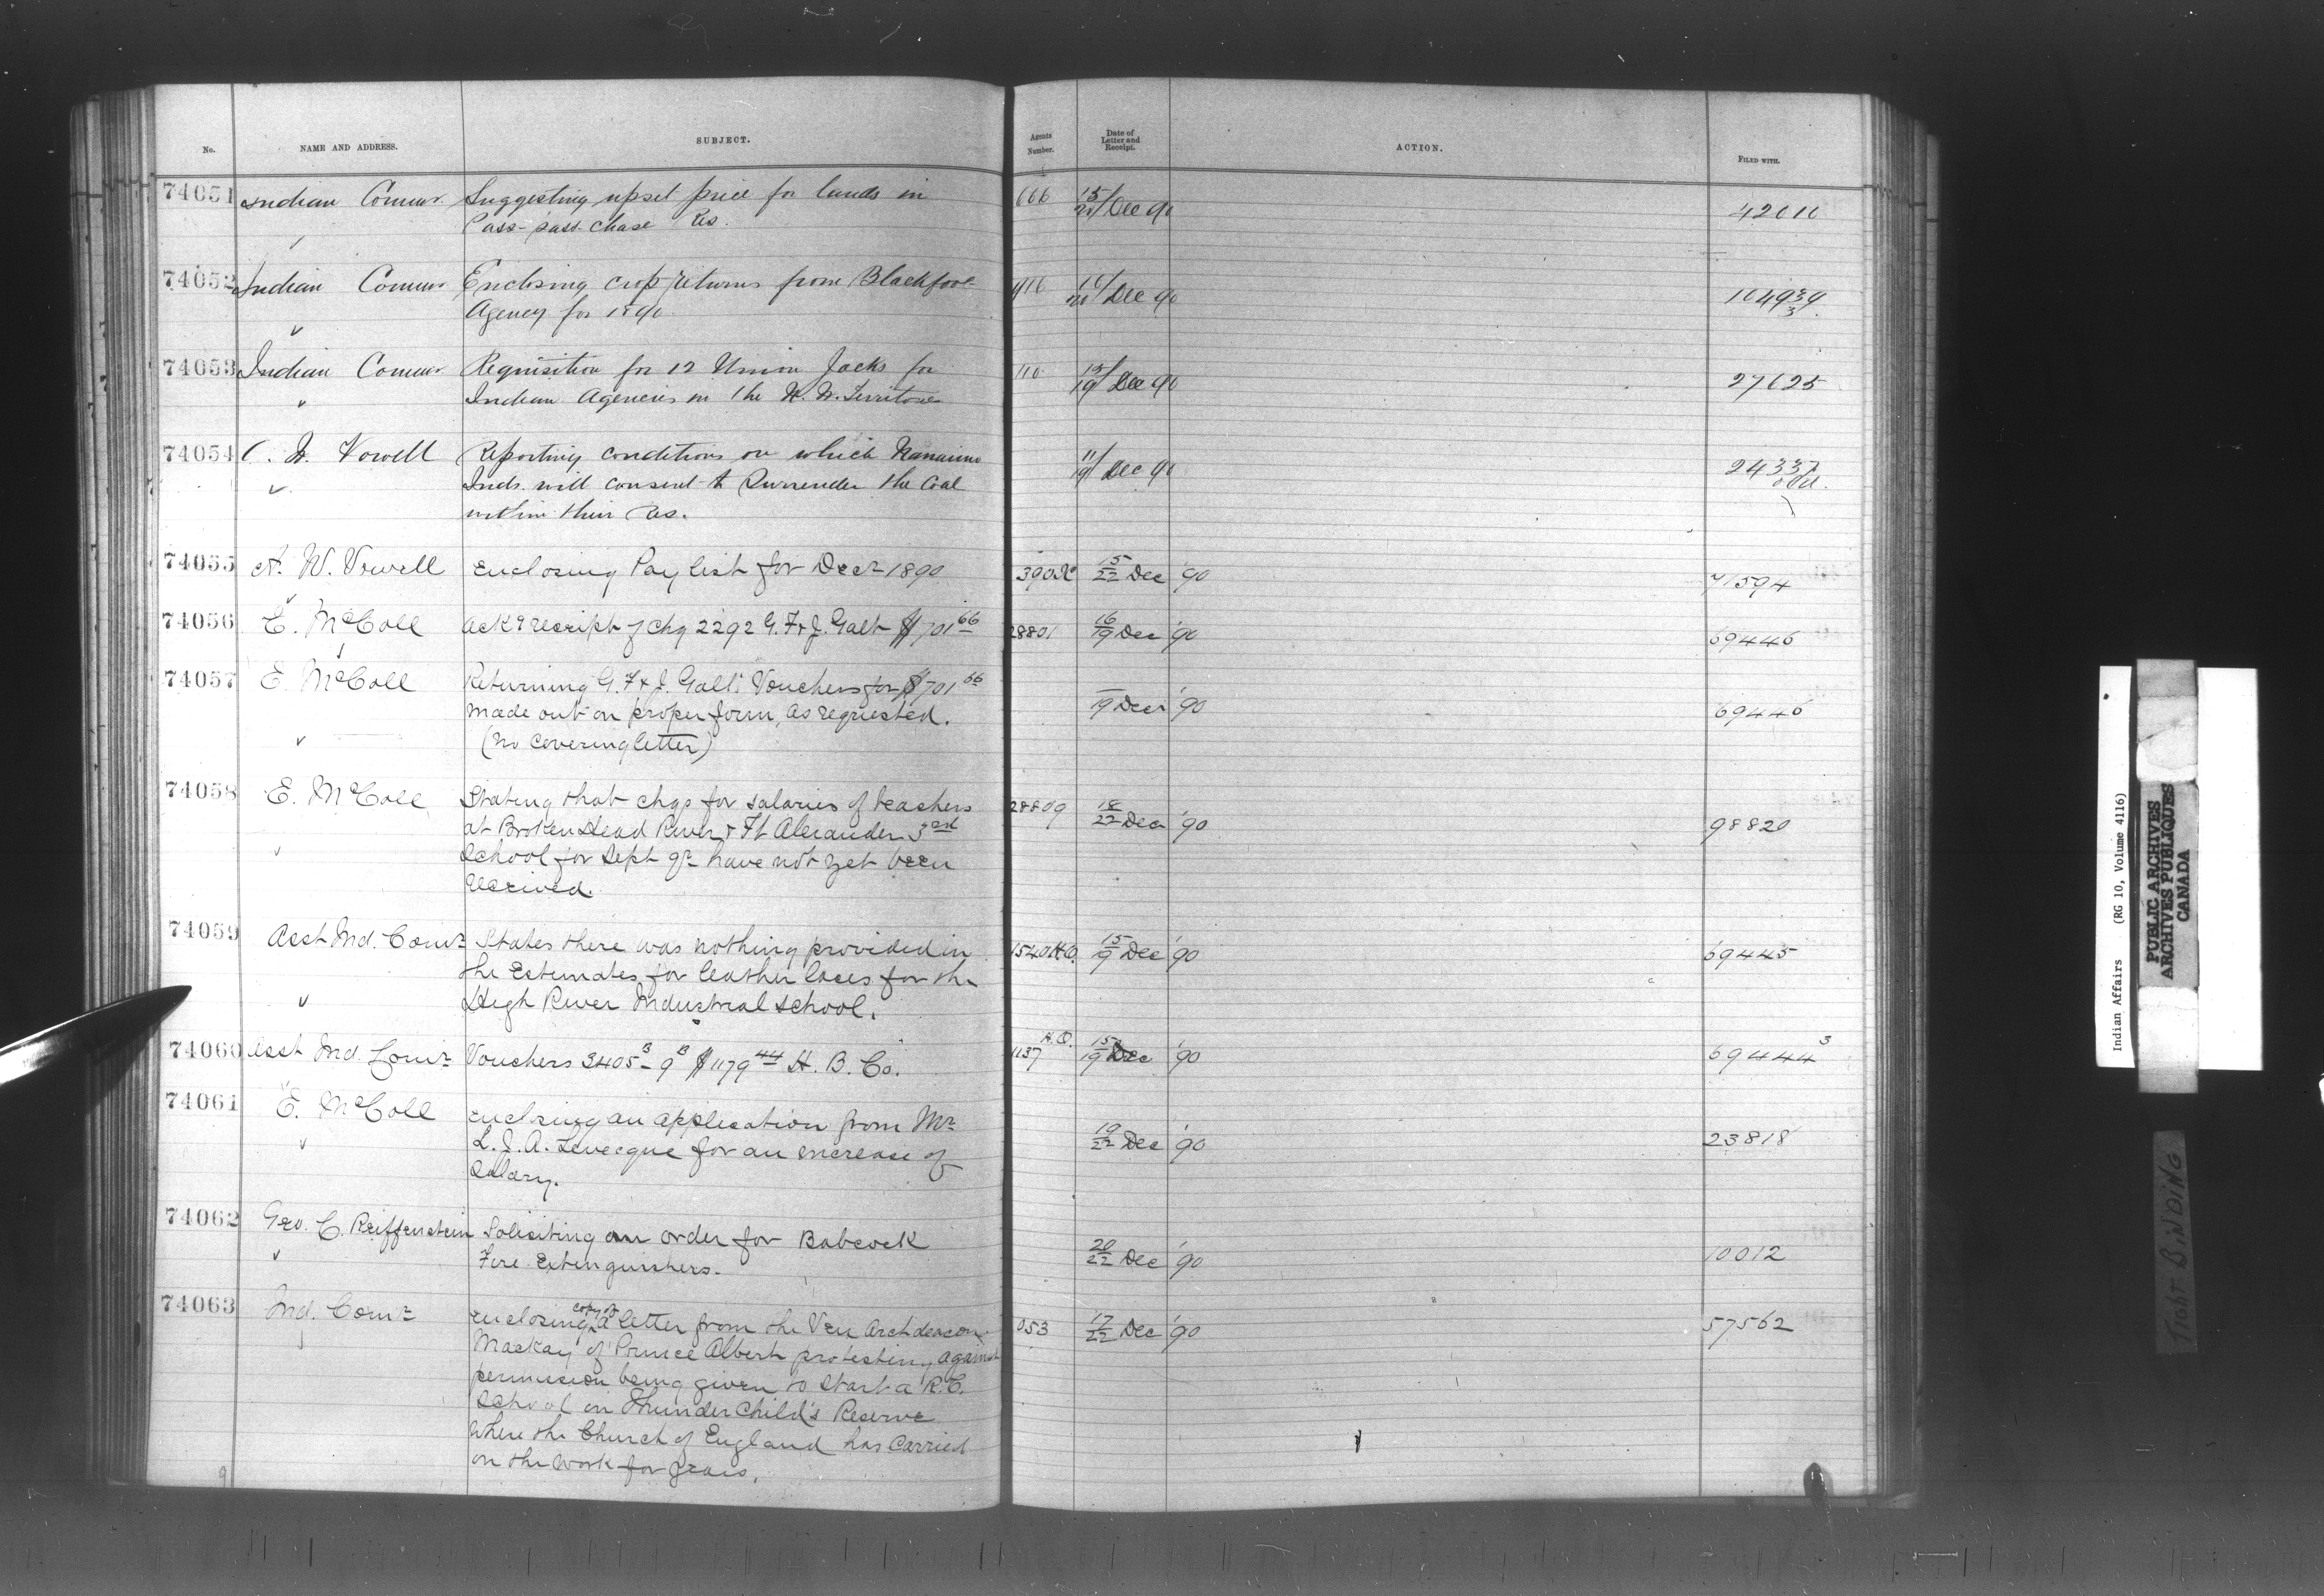 No. NAME AND ADDRESS. SUBJECT. Agents Number. Date of Letter and Receipt. ACTION. FILED WITH.
74051 Indian Commr. Suggesting upset price for lands in 15/20 Dec 90
Pass-pass-chase Res.
74052 Indian Commr Enclosing crop returns from Blackfoot 16/20 Dec 90
Agency for 1890.
74053 Indian Commr Requisition for 12 Union Jacks for 15/19 Dec 90 27625
Indian Agencies in the N. W. Territories
74054 W. Vowell Reporting conditions on which Nanaimo 11/19 Dec 90 24337
Inds. will consent to Surrender the Coal
within their Res.
74055 A. W. Vowell Enclosing Pay list for Decr 1890 15/22 Dec '90 71594
74056 E. McColl Ackg receipt of Chq 2292 G. F. & J. Galt $701 66 28801 16/19 Dec '90 69446
74057 E. McColl Returning G. F. & J. Galt's Vouchers for $701 66 –/19 Decr '90 69446
made out on proper form, as requested.
(no covering letter)
74058 E. McColl Stating that chqs for salaries of teachers 28809 18/22 Dec '90 98820
at Broken Head River & Ft Alexander 3rd
School for Sept qr have not yet been
received.
74059 Asst Ind. Comr States there was nothing provided in 1540 H.O. 15/19 Dec '90 69445
the Estimates for leather laces for the
High River Industrial School.
74060 Asst Ind. Comr Vouchers 3405B – 9B $1179 44 H. B. Co. 1137 H.O. 15/19 Dec '90 69444 3
74061 E. McColl enclosing an application from Mr 19/22 Dec '90 23818
L. J. A. Leveeque for an increase of
Salary.
74062 Geo. C. Reiffenstein Soliciting an order for Babcock 20/22 Dec '90 10012
Fire Extinguishers.
74063 Ind. Comr enclosing copy of a letter from the Ven Archdeacon 053 17/22 Dec '90 57562
Mackay of Prince Albert protesting against
permission being given to start a R.C.
School on Thunder Child's Reserve
where the Church of England has carried
on the work for years.
Indian Affairs (RG 10, Volume 4116)
PUBLIC ARCHIVES
ARCHIVES PUBLIQUES
CANADA
TIGHT BINDING